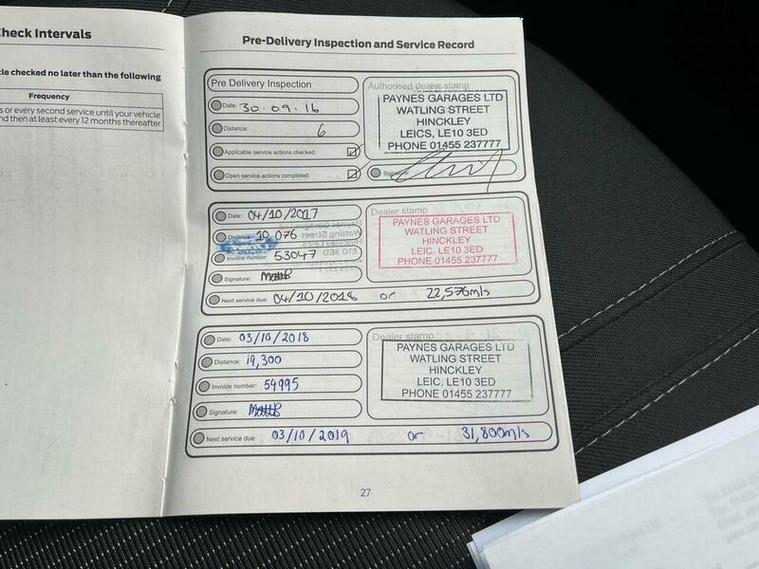 Check Intervals
cle checked no later than the following
Frequency
s or every second service until your vehicle
nd then at least every 12 months thereafter
Pre-Delivery Inspection and Service Record
Pre Delivery Inspection
Date: 30.09.16
Distance: 6
Applicable service actions checked:
Open service actions completed:
Authorised dealer stamp
PAYNES GARAGES LTD
WATLING STREET
HINCKLEY
LEICS, LE10 3ED
PHONE 01455 237777
Date: 04/10/2017
Distance: 10 076
Invoice number: 53047
Signature:
Next service due: 04/10/2018 or 22,576mls
Dealer stamp
PAYNES GARAGES LTD
WATLING STREET
HINCKLEY
LEIC. LE10 3ED
PHONE 01455 237777
Date: 03/10/2018
Distance: 19,300
Invoice number: 54995
Signature:
Next service due: 03/10/2019 or 31,800mls
Dealer stamp
PAYNES GARAGES LTD
WATLING STREET
HINCKLEY
LEIC. LE10 3ED
PHONE 01455 237777
27